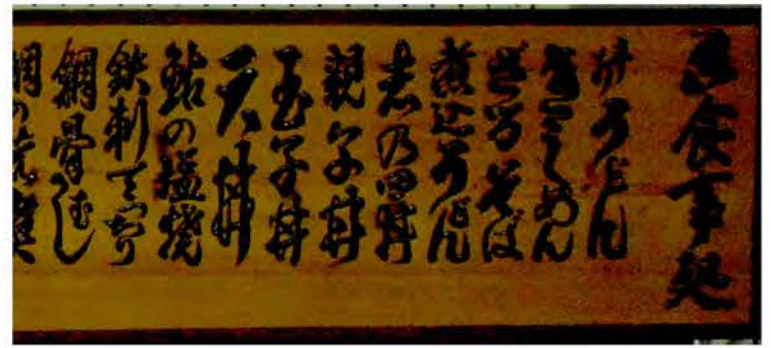 お食事処
うどん
きしめん
ざるそば
煮込うどん
志乃田丼
親子丼
玉子丼
天丼
鮎の塩焼
鉄刺てっちり
鯛骨むし
鯛の荒